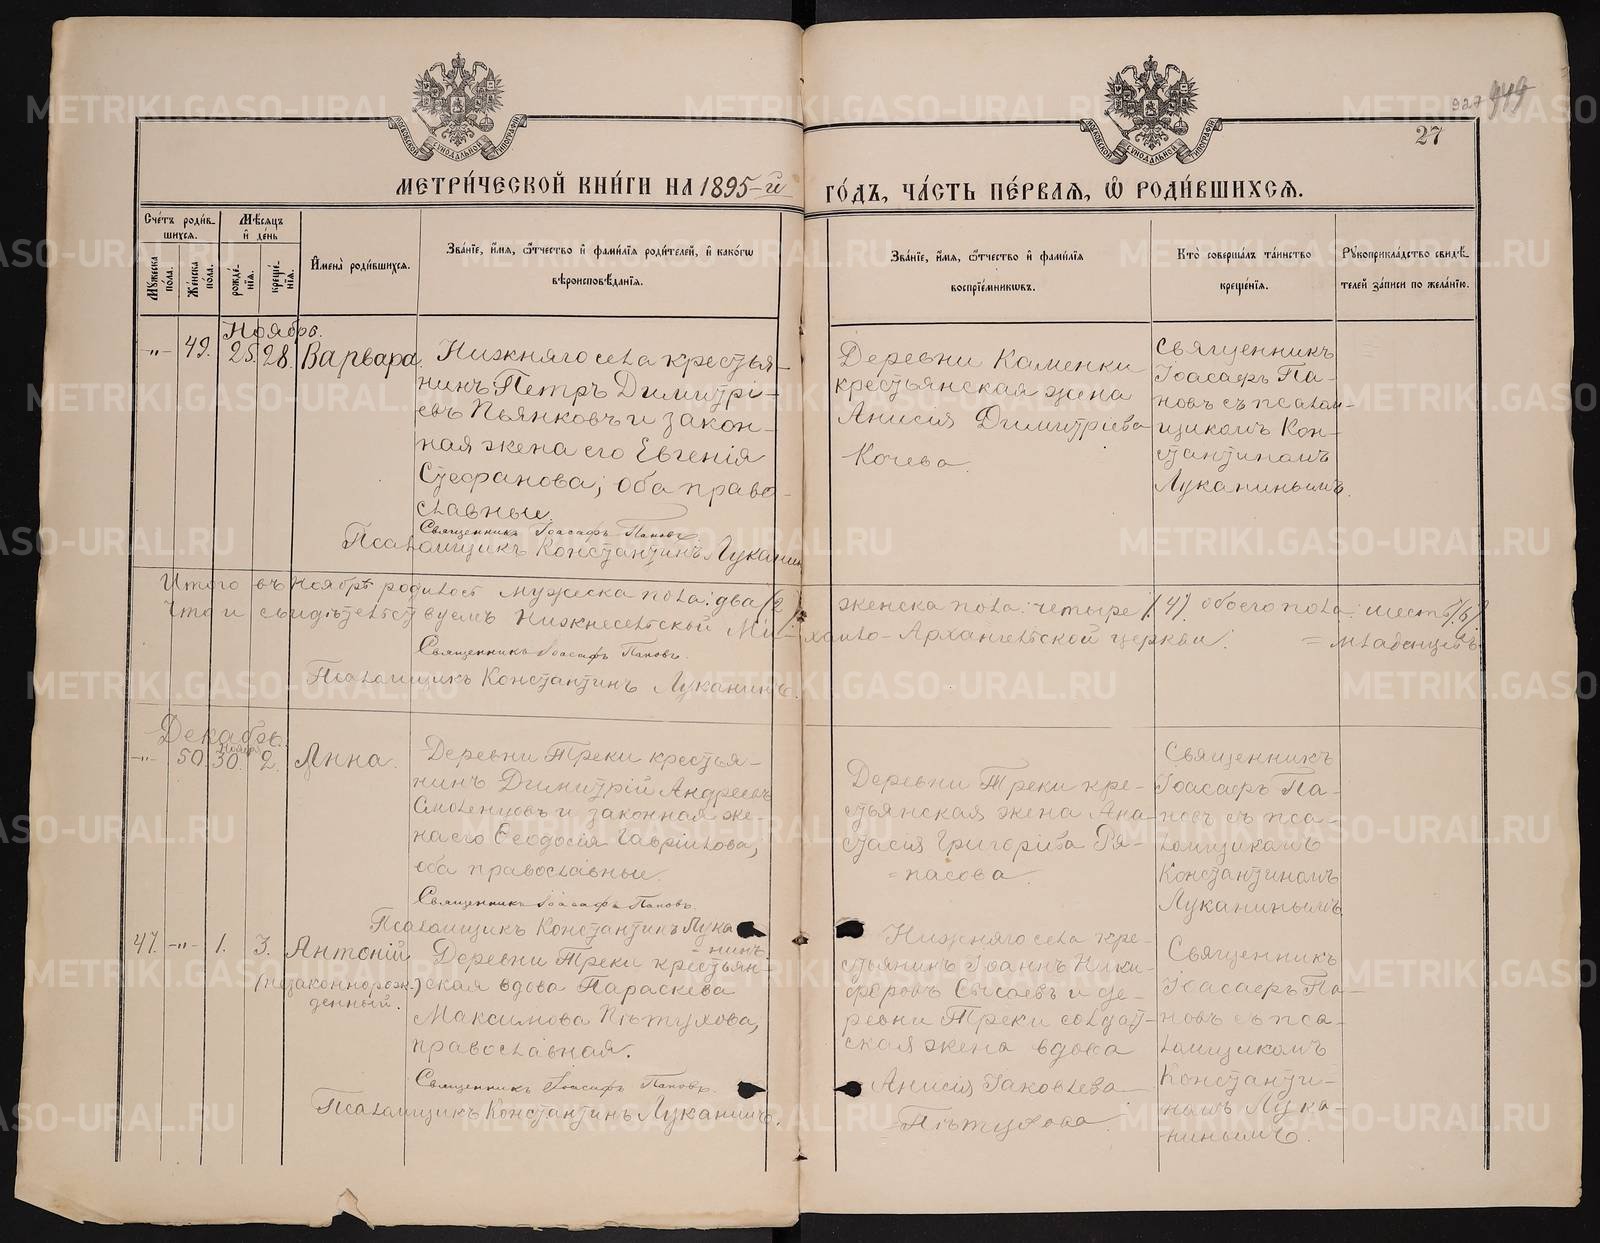 927 949
27
МЕТРИ́ЧЕСКОЙ КНИ́ГИ НА 1895-й ГО́ДЪ, ЧА́СТЬ ПЕ́РВАѦ, Ѽ РОДИ́ВШИХСѦ.
Сче́тъ роди́в-
шихся.
Мѣ́сяцъ
и҆ де́нь
Му́жеска
по́ла.
Же́нска
по́ла.
рожде́-
нїя.
креще́-
нїя.
И҆мена̀ роди́вшихся.
Зва́нїе, и҆́мя, ѻ҆́тчество и҆ фами́лїя роди́телей, и҆ како́гѡ
вѣроисповѣ́данїя.
Зва́нїе, и҆́мя, ѻ҆́тчество и҆ фами́лїя
воспрїе́мникѡвъ.
Кто̀ соверша́лъ та́инство
креще́нїя.
Рукоприкла́дство свидѣ́-
телей за́писи по жела́нїю.
Ноябрь.
-"- 49. 25. 28. Варвара.
Нижняго села крестья-
нинъ Петръ Димитрі-
евъ Пьянковъ и закон-
ная жена его Евгенія
Стефанова; оба право-
славные.
Священникъ Іоасафъ Пановъ.
Псаломщикъ Константинъ Луканин
Деревни Каменки
крестьянская жена
Анисія Димитріева
Кочева.
Священникъ
Іоасафъ Па-
новъ съ псалом-
щикомъ Кон-
стантиномъ
Луканинымъ.
Итого въ ноябрѣ родилось мужеска пола: два /2/. женска пола: четыре /4/. обоего пола: шесть /6/
младенцевъ
Что и свидѣтельствуемъ Нижнесельской Ми-хаило-Архангельской церкви:
Священникъ Іоасафъ Пановъ.
Псаломщикъ Константинъ Луканинъ.
Декабрь.
-"- 50. 30. ноября 2. Анна.
Деревни Треки крестья-
нинъ Димитрій Андреевъ
Смоленцовъ и законная же-
на его Ѳеодосія Гавріилова,
оба православные.
Священникъ Іоасафъ Пановъ.
Псаломщикъ Константинъ Лука
нинъ
Деревни Треки кре-
стьянская жена Ана
стасія Григоріева Ря-
пасова.
Священникъ
Іоасафъ Па-
новъ съ пса-
ломщикомъ
Константиномъ
Луканинымъ.
47. -"- 1. 3. Антоній
(незаконнорож-
денный.)
Деревни Треки крестьян-
ская вдова Параскева
Максимова Пѣтухова,
православная.
Священникъ Іоасафъ Пановъ.
Псаломщикъ Константинъ Луканинъ.
Нижняго села кре-
стьянинъ Іоаннъ Ники-
форовъ Сысоевъ и де-
ревни Треки солдат-
ская жена вдова
Анисія Іаковлева
Пѣтухова.
Священникъ
Іоасафъ Па-
новъ съ пса-
ломщикомъ
Константи-
номъ Лука-
нинымъ.
METRIKI.GASO-URAL.RU